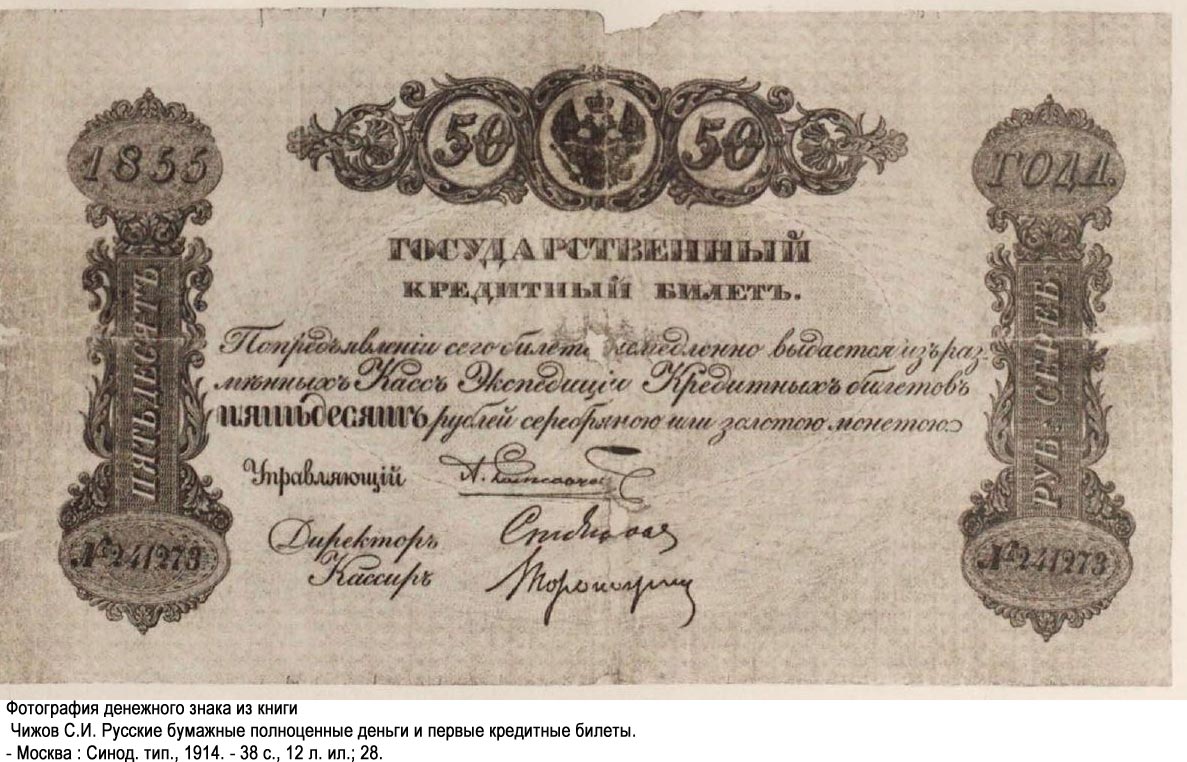 50 50
1855 ГОДА.
ГОСУДАРСТВЕННЫЙ
КРЕДИТНЫЙ БИЛЕТЪ.
По предъявленіи сего билета немедленно выдается изъ раз-
мѣнныхъ Кассъ Экспедиціи Кредитныхъ билетовъ
пятьдесятъ рублей серебряною или золотою монетою
ПЯТЬДЕСЯТЪ
РУБ: СЕРЕБ:
Управляющій
Директоръ
Кассиръ
№ 241273
№ 241273
Фотография денежного знака из книги
Чижов С.И. Русские бумажные полноценные деньги и первые кредитные билеты.
- Москва : Синод. тип., 1914. - 38 с., 12 л. ил.; 28.